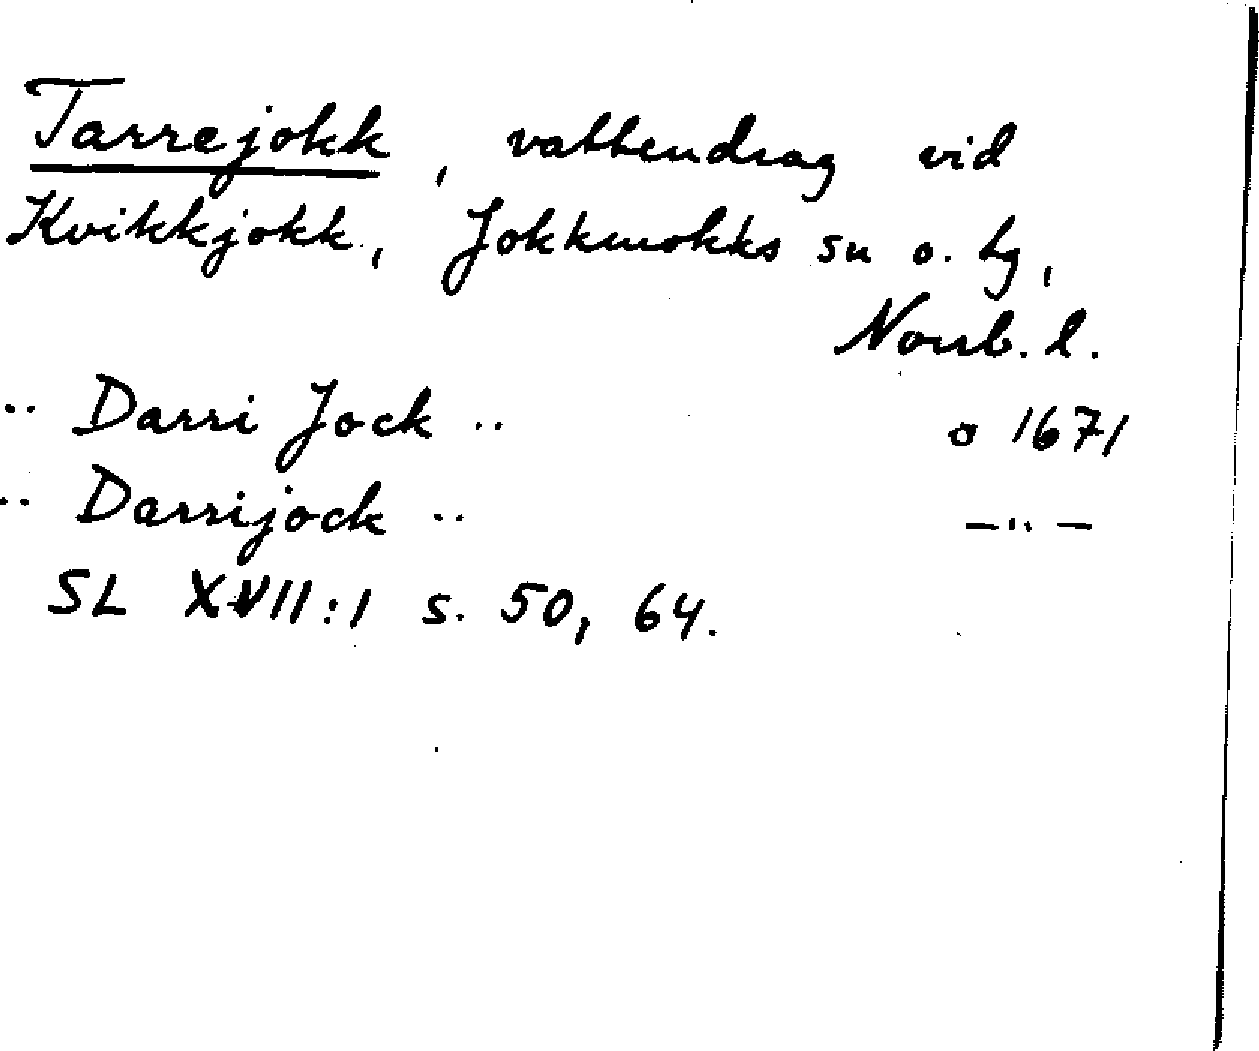 Tarrejokk, vattendrag vid
Kvikkjokk, Jokkmokks sn o. lg,
Norrb. l.
.. Darri Jock .. o 1671
.. Darrijock .. —"—
SL XVII:1 s. 50, 64.